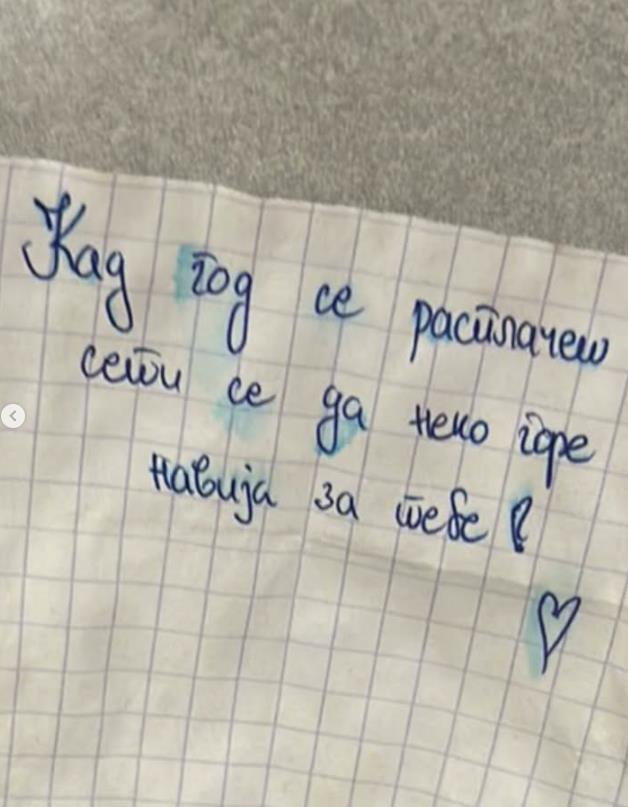 Кад год се расплачеш
сети се да неко горе
навија за тебе!